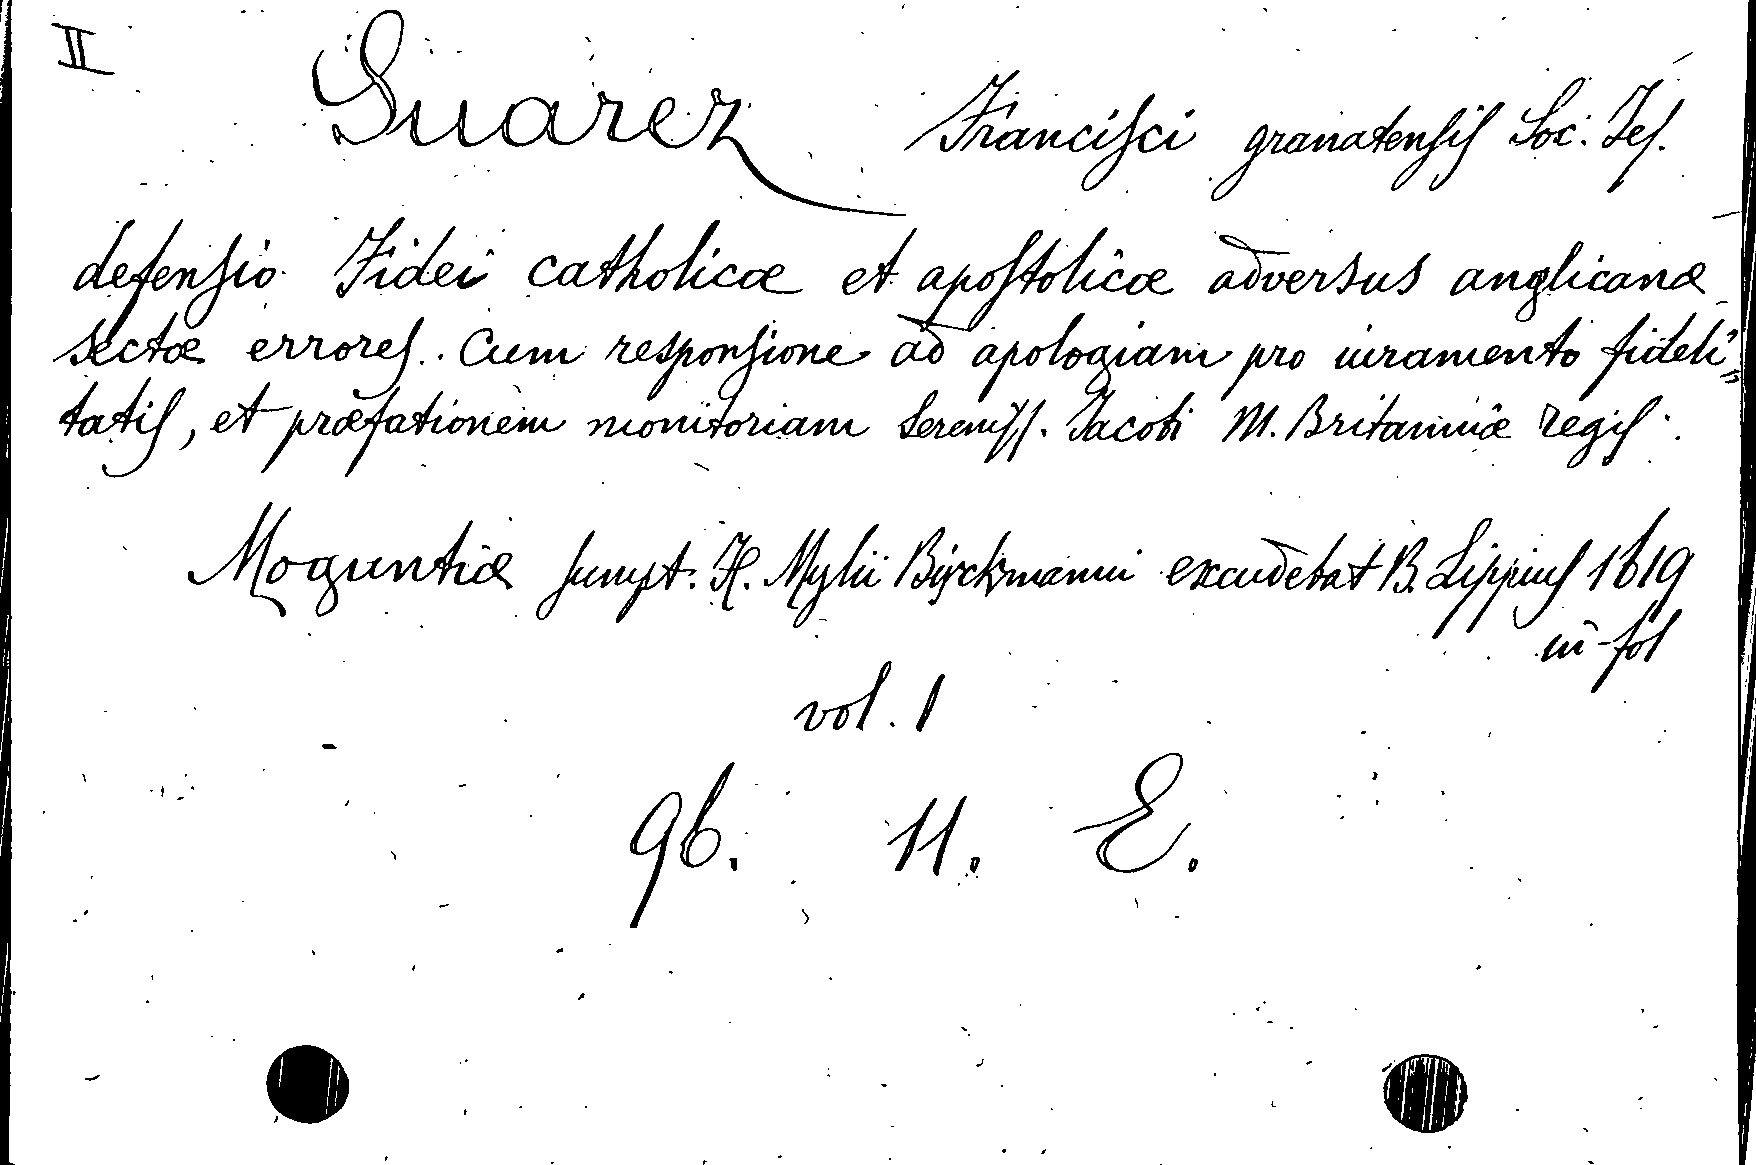 II
Suarez Francisci granatensis Soc. Jes.
defensio Fidei catholicæ et apostolicæ adversus anglicanæ
sectæ errores. Cum responsione ad apologiam pro iuramento fideli„
tatis, et præfationem monitoriam sereniss. Jacobi M. Britanniæ regis.
Moguntiæ sumpt. H. Mylii Birckmanni excudebat B. Lippius 1619
in-fol
vol. 1
96. 11. E.